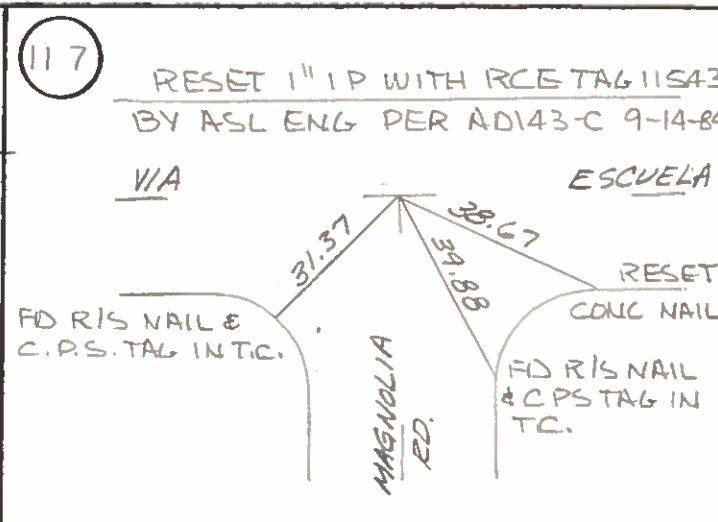 117
RESET 1" IP WITH RCE TAG 11543
BY ASL ENG PER AD143-C 9-14-84
VIA ESCUELA
31.37
39.88
38.67
RESET
CONC NAIL
FD R/S NAIL &
C.P.S. TAG IN T.C.
FD R/S NAIL
& CPS TAG IN
T.C.
MAGNOLIA
RD.